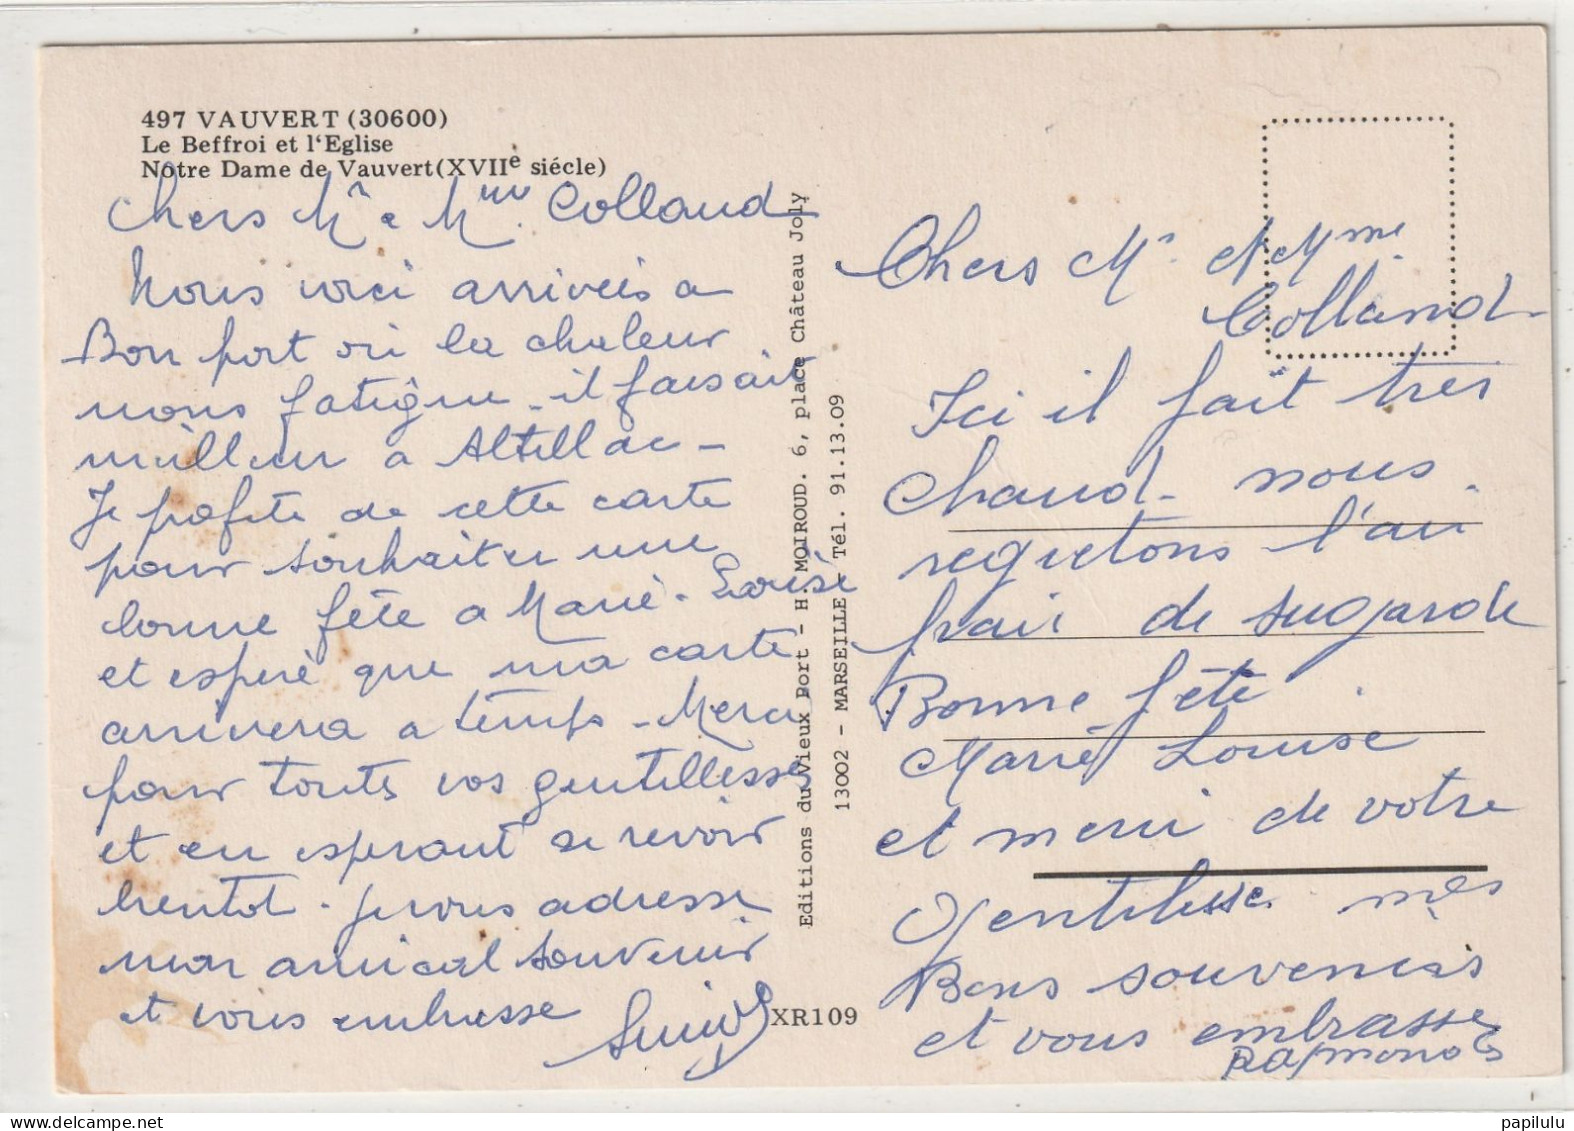 497 VAUVERT (30600)
Le Beffroi et l'Eglise
Notre Dame de Vauvert (XVIIe siécle)
Chers Mr e Mme Colland
Nous voici arrivées a
Bon port où la chaleur
nous fatigue - il faisait
meilleur a Altillac -
Je profite de cette carte
pour souhaiter une
bonne fête a Marie-Louise
et espere que ma carte
arrivera a temps - Merci
pour toutes vos gentillesses
et en esperant se revoir
bientot - je vous adresse
mon amical souvenir
et vous embrasse
Editions du Vieux Port - H. MOIROUD. 6, place Château Joly
13002 - MARSEILLE - Tél. 91.13.09
XR109
Chers Mr et Mme
Colland
Ici il fait tres
chaud - nous
regretons l'air
frai de sugarde
Bonne fête
Marie Louise
et merci de votre
gentilesse mes
Bons souvenirs
et vous embrasse
Raymonde
papilulu